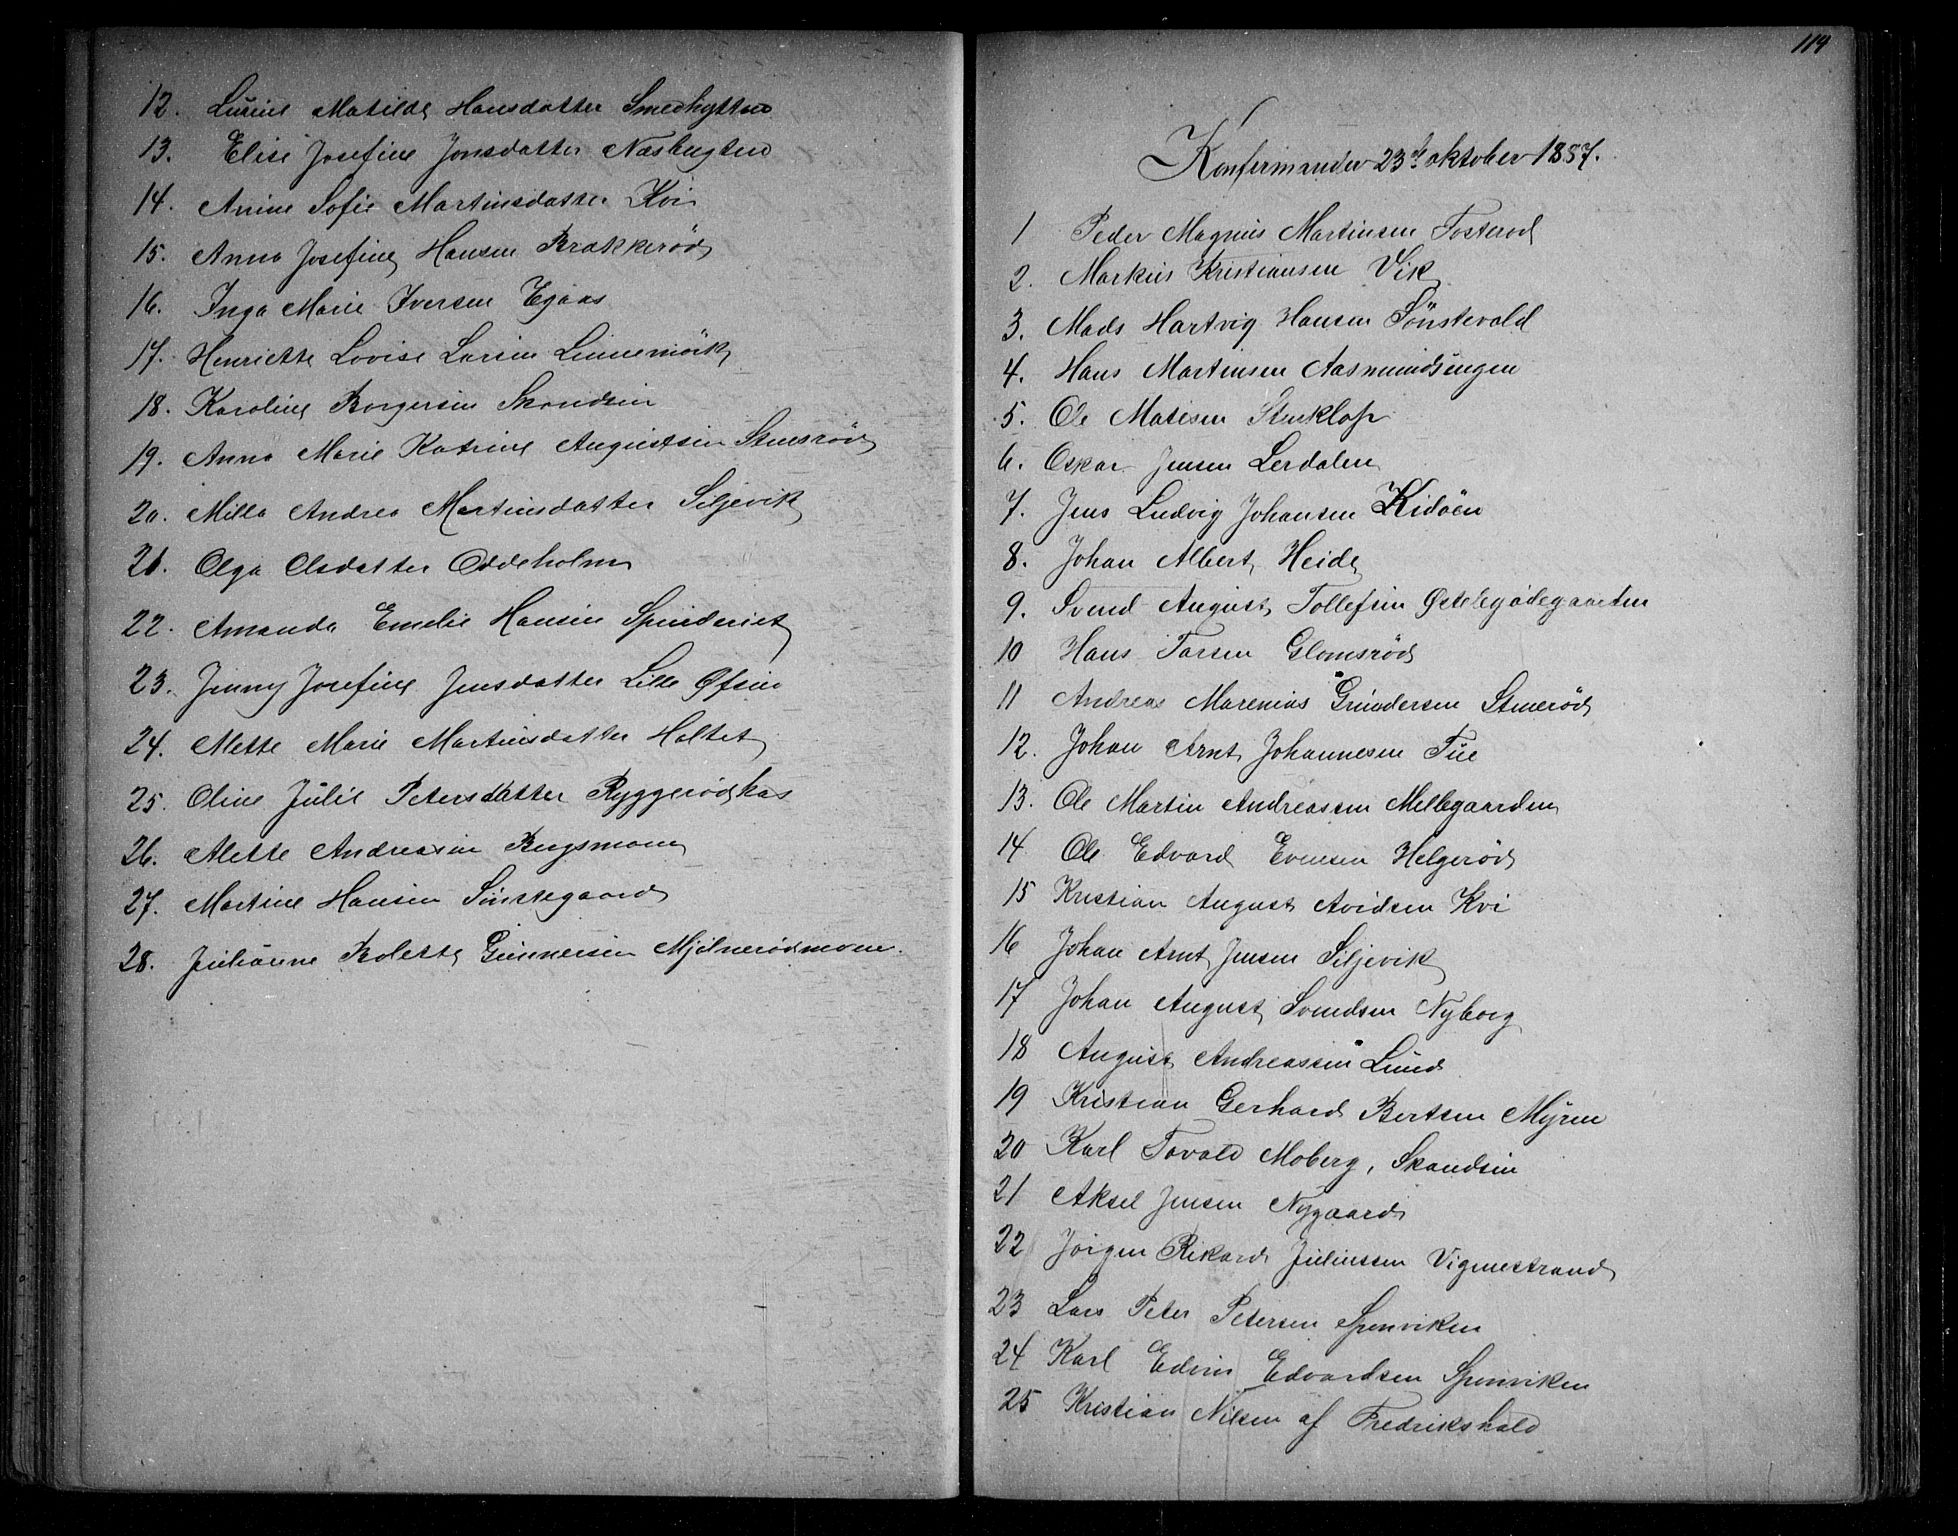 12. Lucine Matilde Hansdatter Smedhytten
13. Elise Josefine Jonsdatter Næsbugten
14. Anine Sofie Martinsdatter Kvi
15. Anna Josefine Hansen Brakkerød
16. Inga Marie Iversen Egaas
17. Henriette Lovise Larsen Linnemörk
18. Karoline Borgersen Skandsen
19. Anna Marie Katrine Augustsen Stensrød
20. Milla Andrea Martinsdatter Siljevik
21. Olga Olsdatter Oddeholm
22. Amanda Emelie Hansen Spinderiet
23. Jenny Josefine Jensdatter Lille Øfsin
24. Mette Marie Martinsdatter Holtet
25. Oline Julie Petersdatter Ryggerødkas
26. Alette Andreasen Bergsmoen
27. Martine Hansen Sönstegaard
28. Julianne Bolette Gunnersen Mjölnerödmoen.
114
Konfirmander 23de oktober 1887.
1 Peder Magnus Martinsen Tosterød
2. Markus Kristiansen Vik
3. Mads Hartvig Hansen Sönstevold
4. Hans Martinsen Aasmundsengen
5. Ole Matisen Stenklop
6. Oskar Jensen Lerdalen
7. Jens Ludvig Johansen Kidöen
8. Johan Albert Heide
9. Svend August Tollefsen Østebygdegaarden
10 Hans Larsen Glomsrød
11 Andreas Marenius Gundersen Stuerød
12. Johan Arnt Johannesen Tue
13. Ole Martin Andreassen Mellegaarden
14 Ole Edvard Evensen Helgerød
15 Kristian August Avidsen Kvi
16 Johan Arnt Jensen Siljevik
17 Johan August Svendsen Nyborg
18 August Andreassen Lund
19 Kristian Gerhard Bertsen Myren
20 Karl Tovald Moberg, Skandsen
21 Aksel Jensen Nygaard
22 Jørgen Rikard Juliussen Vignestrand
23 Lars Peter Petersen Sponviken
24 Karl Edvin Edvardsen Sponviken
25 Kristian Nilsen af Fredrikshald